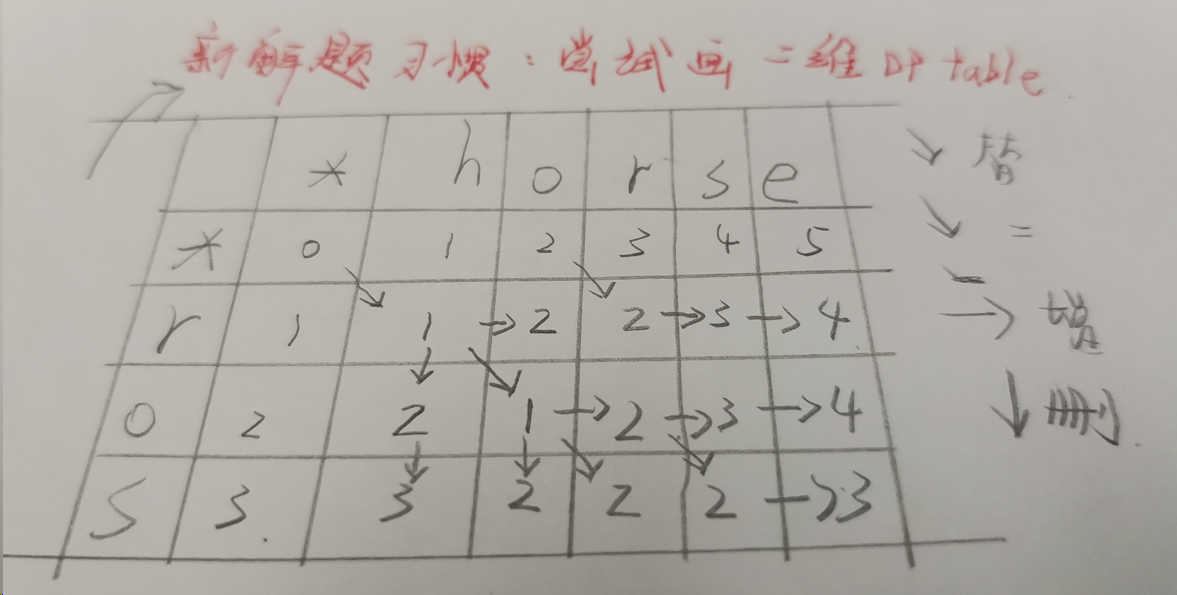 新解题习惯：尝试画二维DP table
* h o r s e
* 0 1 2 3 4 5
r 1 1 → 2 2 → 3 → 4
o 2 2 1 → 2 → 3 → 4
s 3. 3 2 2 2 → 3
↘ 替
↘ =
→ 增
↓ 删